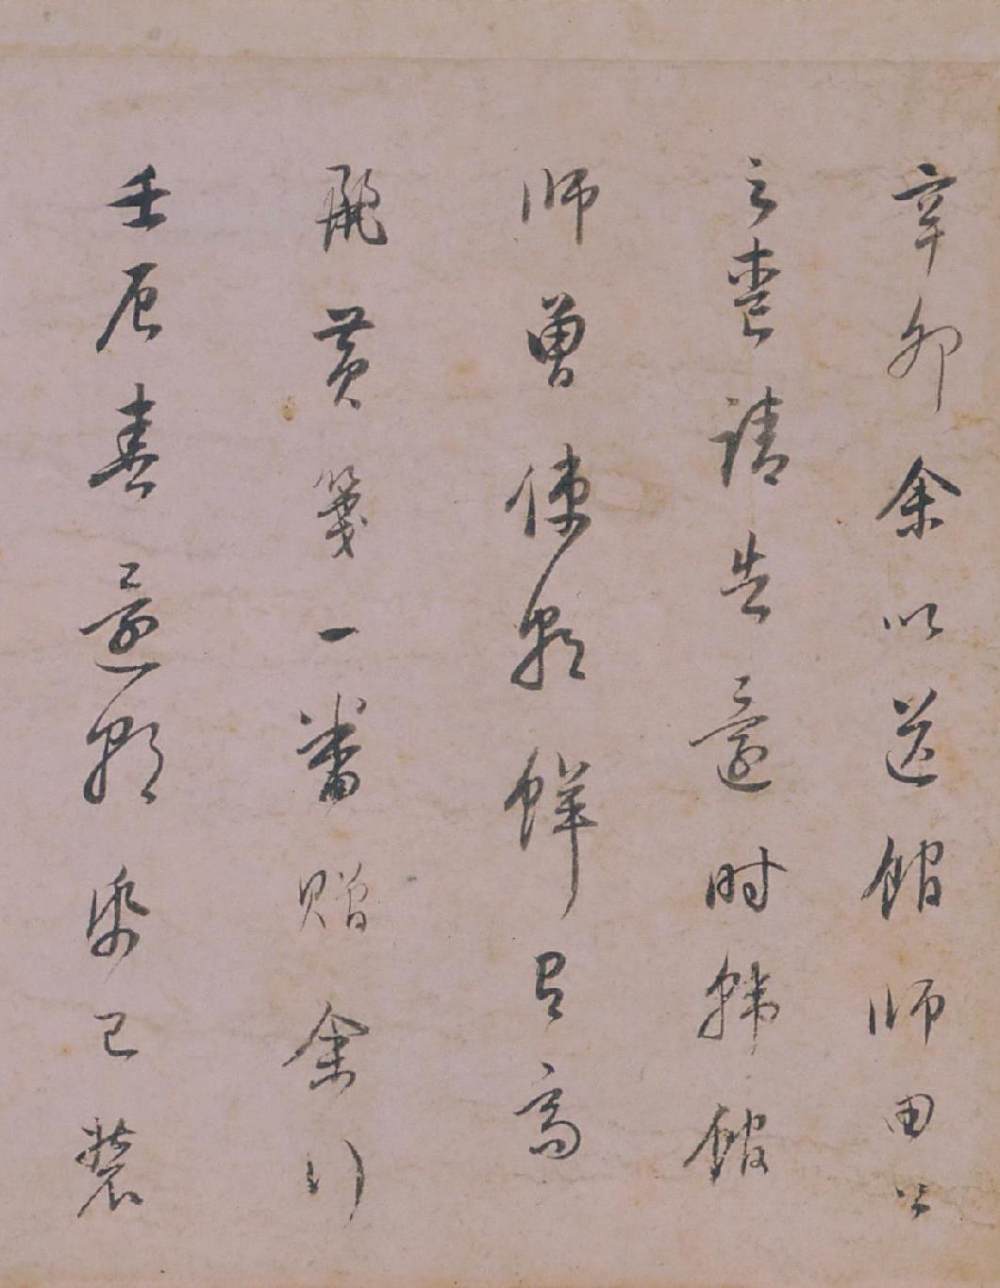 辛卯余以送館師田公
之喪請告還時韓館
師曾使朝鮮㠯高
麗黃箋一番贈余行
壬辰春還朝帋已裝